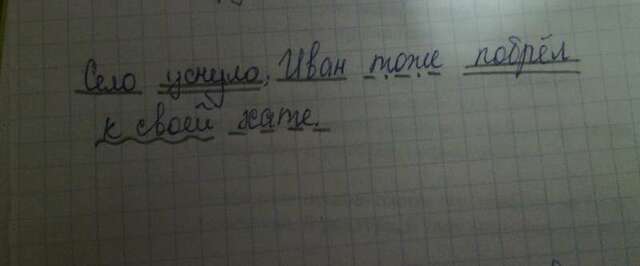 Село уснуло, Иван тоже побрёл
к своей хате.